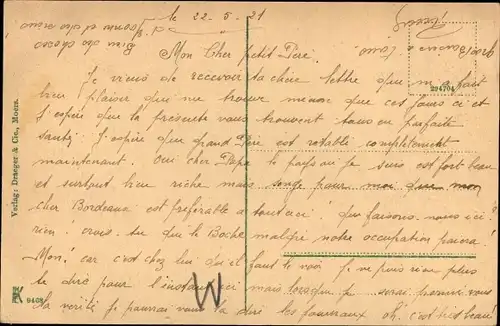 le 22-5-21
Mon Cher petit Père.
Je viens de recevoir ta chère lettre que m'a fait
bien plaisir que ne trouve menar que ces jours ci et
J'espère que la présente vous trouvent tous en parfaite
santé. J'espère que grand Père est rotable complètement
maintenant. Oui cher Papa le pays où je suis est fort beau
et surtout bien riche mais songe pour moi que mon
cher Bordeaux est préférable à tout ceci! que faisons-nous ici?
rien! crois-tu que le Boche malgré notre occupation paiera?
Non! car c'est chez lui qu'il faut le voir. Je ne puis rien plus
te dire pour l'instant mais lorsque je serai parmi vous
la vérité je pourrai vous la dire les fourneaux oh. c'est bien beau
294704
Verlag: Draeger & Cie., Moers.
9408
W